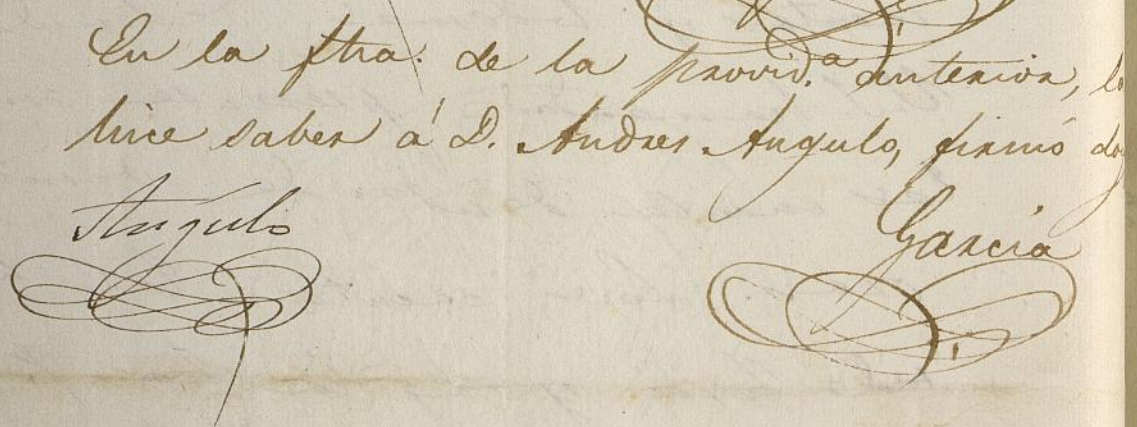 En la fha: de la provid.ª anterior, lo
hice saber á D. Andres Angulo, firmó doy
Angulo
Garcia